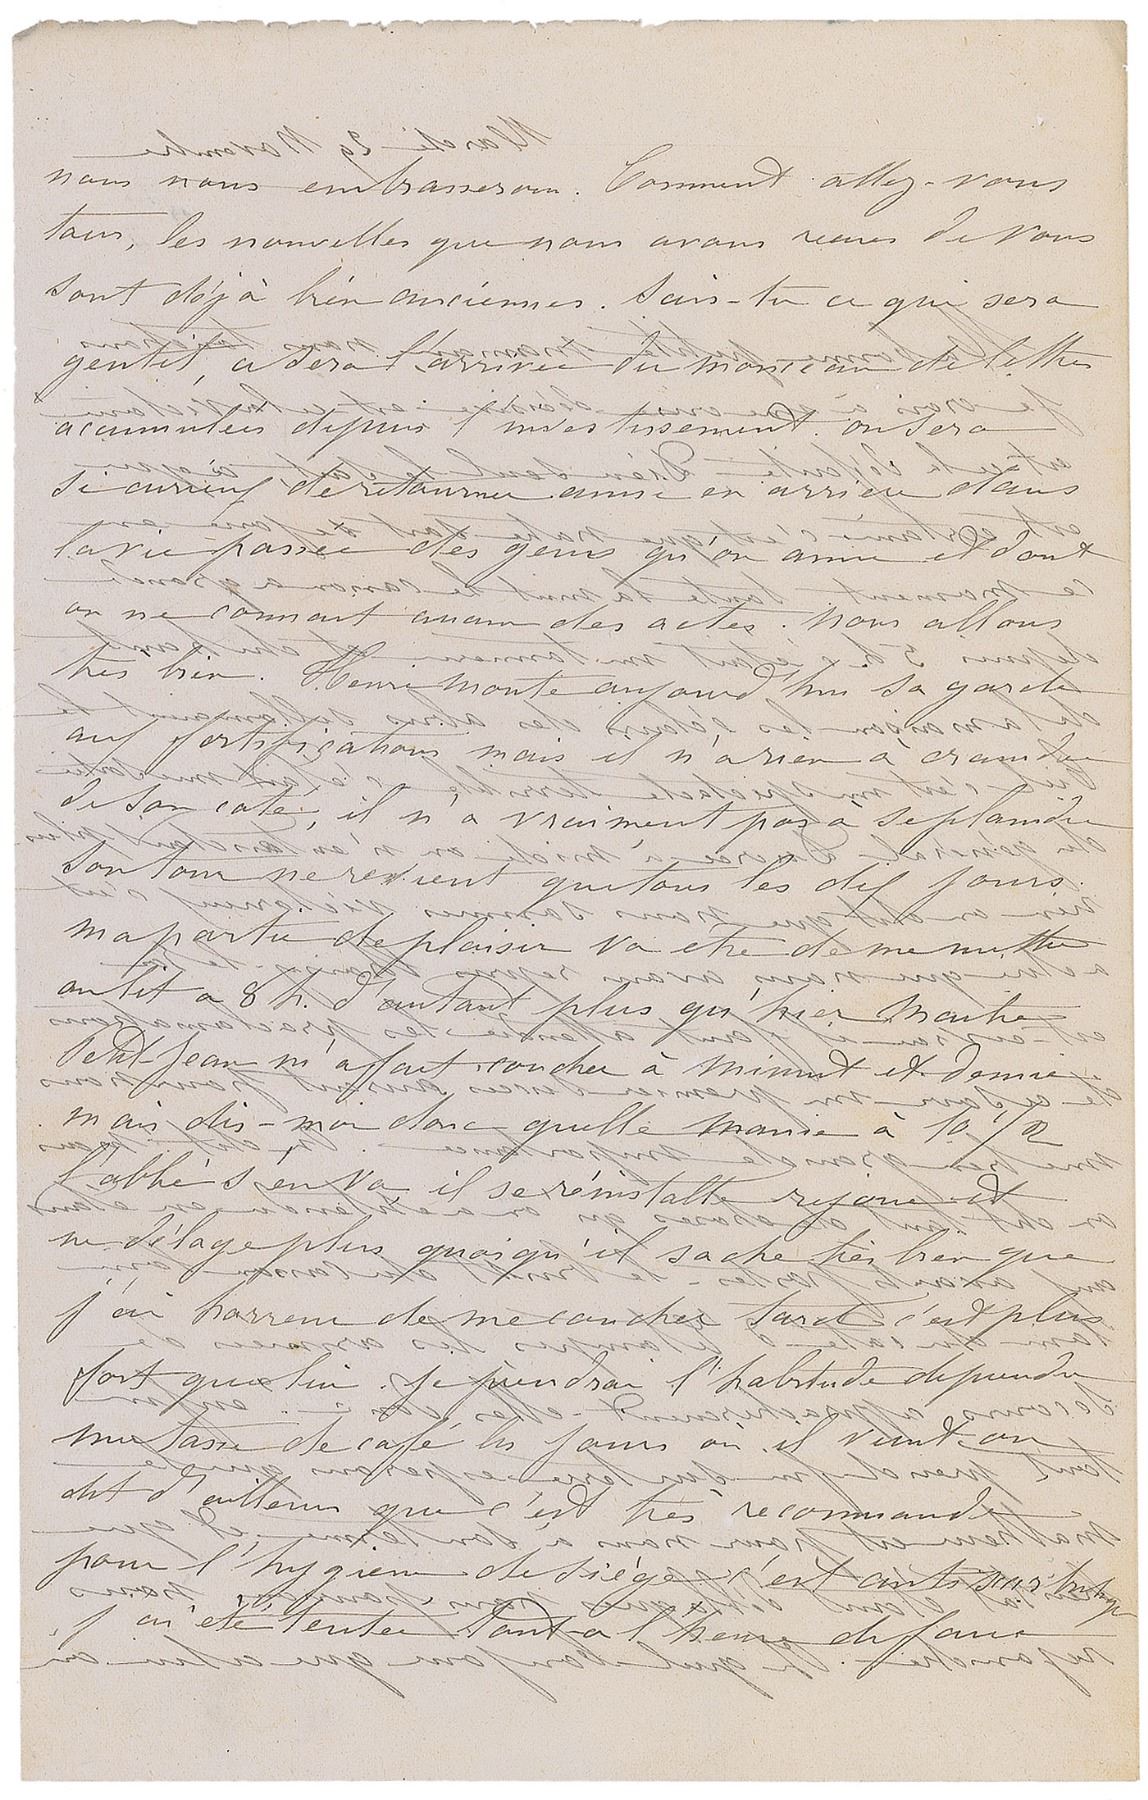 nous nous embrasserons. Comment allez-vous
tous, les nouvelles que nous avons reçues de vous
sont déjà bien anciennes. Sais-tu ce qui sera
gentil, ce sera l'arrivée du monceau de lettres
accumulées depuis l'investissement. on sera
si curieux de retourner ainsi en arrière dans
la vie passée des gens qu'on aime et dont
on ne connait aucun des actes. Nous allons
très bien. Henri monte aujourd'hui sa garde
aux fortifications mais il n'a rien à craindre
de son côté, il n'a vraiment pas à se plaindre
son tour ne revient que tous les dix jours.
ma partie de plaisir va être de me mettre
au lit à 8 h. d'autant plus qu'hier
Petit-Jean m'a fait coucher à minuit et demie
mais dis-moi donc quelle manie à 10 1/2
l'abbé s'en va il se réinstalle rejoue et
ne délage plus quoiqu'il sache très bien que
j'ai horreur de me coucher tard c'est plus
fort que lui. je prendrai l'habitude de prendre
une tasse de café les jours où il vient. on
dit d'ailleurs que c'est très recommandé
pour l'hygiène de siège c'est
j'ai été tentée tout à l'heure de faire